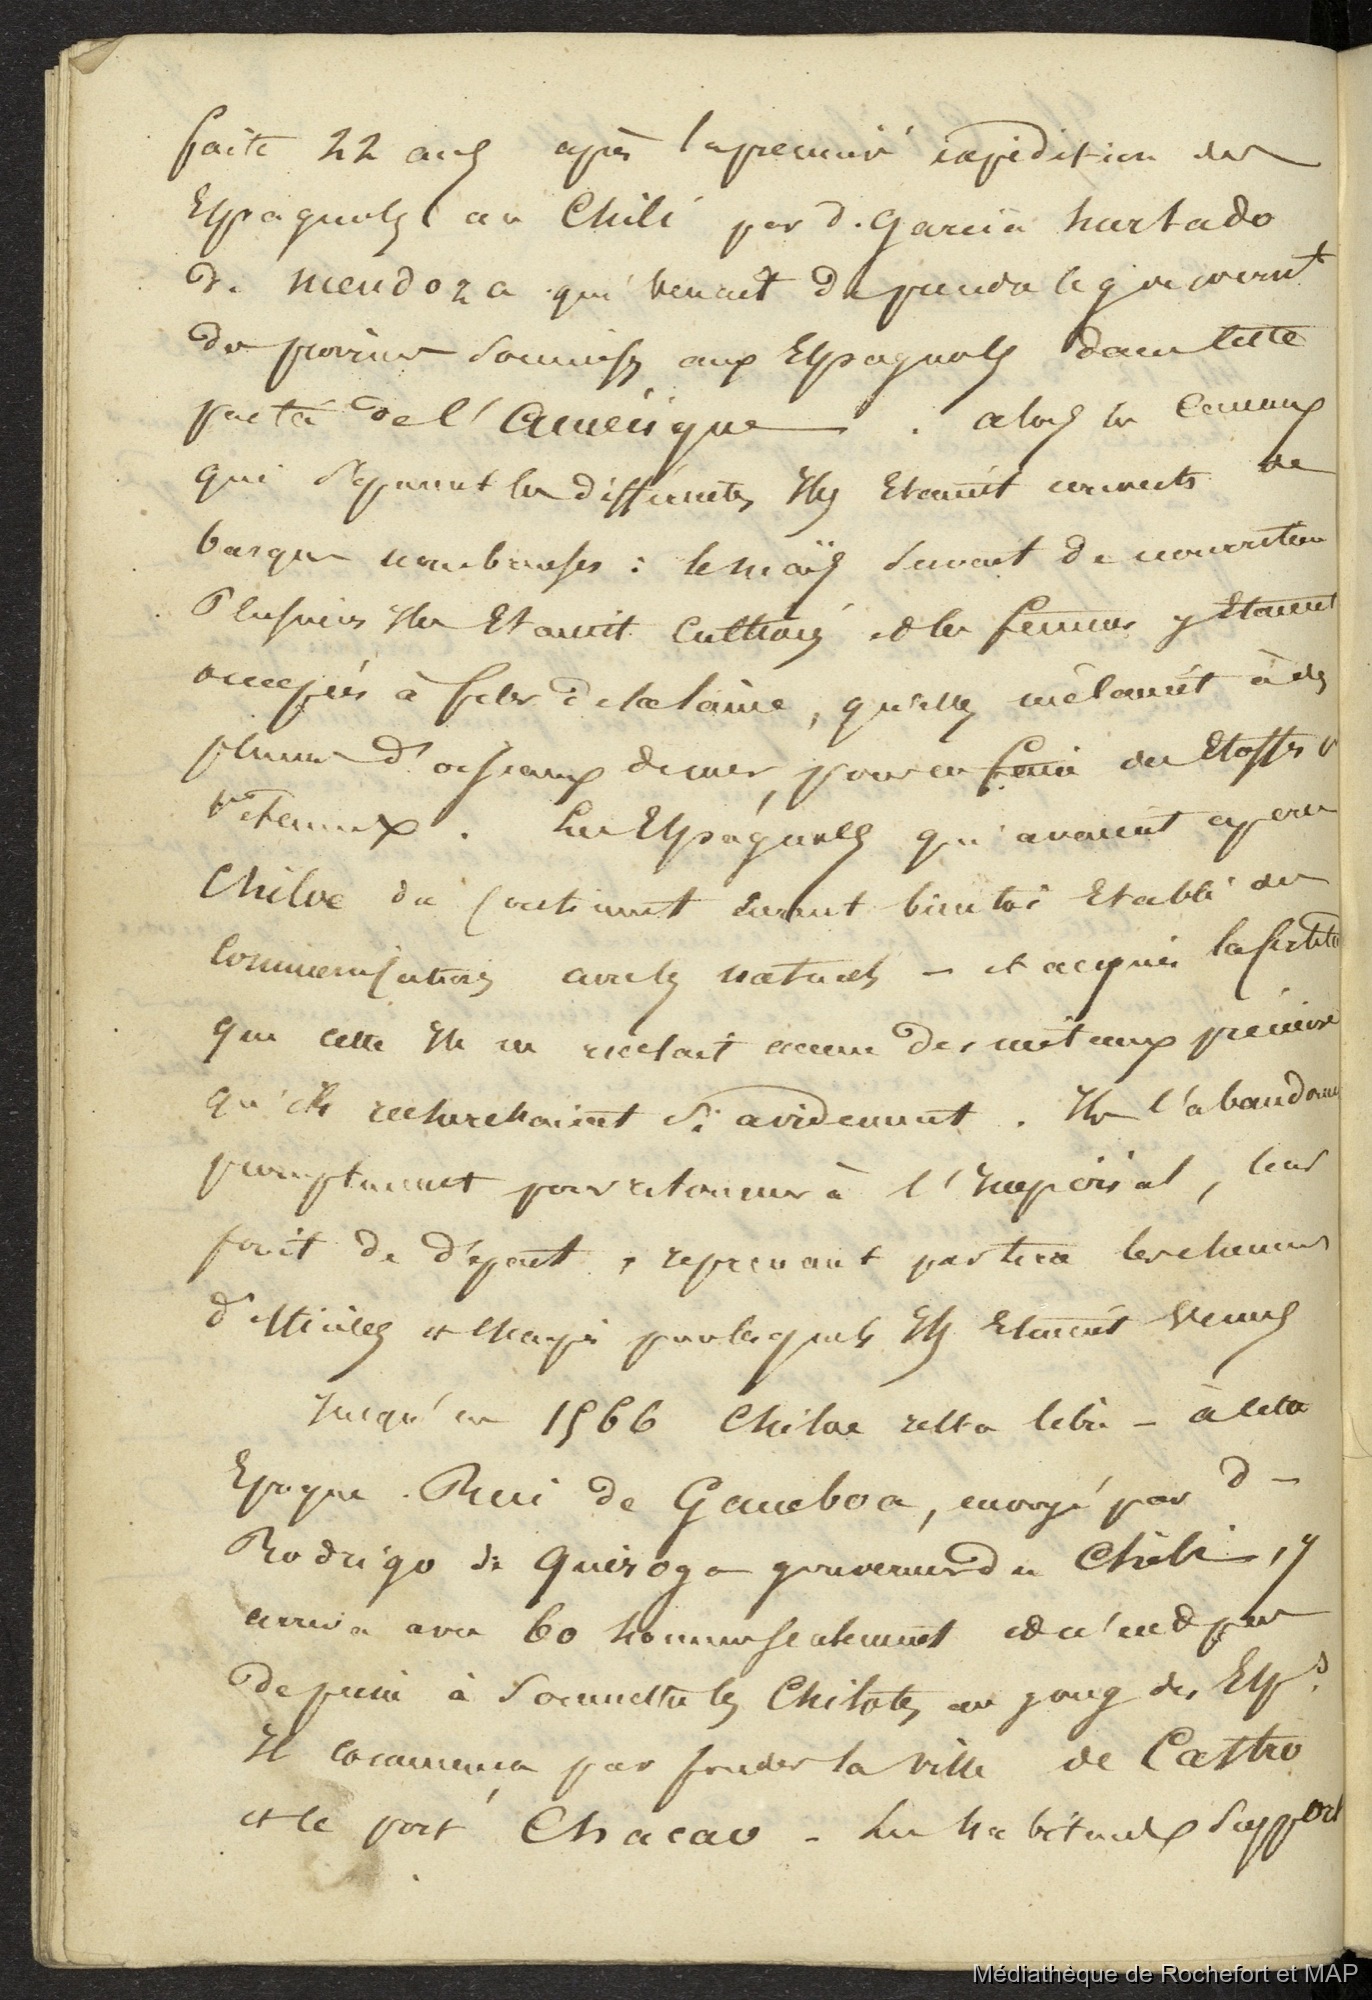 faite 22 ans après la première expédition des
Espagnols au Chili par d. Garcia hurtado
de mendoza qui venait de prendre le gouvernt
des provinces soumises aux Espagnols dans cette
partie de l'Amérique . alors les Canaux
qui séparent les différentes Iles Etaient couverts de
barques nombreuses : le maïs servait de nourriture
Plusieurs Iles Etaient cultivées et les femmes y Etaient
occupées à filer de la laine, qu'elles mêlaient à des
plumes d'oiseaux de mer, pour en faire des Etoffes &
vêtemens . Les Espagnols qui avaient aperçu
Chiloe du Continent eurent bientôt Etabli des
Communications avec les naturels – et acquis la certitude
que cette Ile ne recelait aucun des métaux précieux
qu'ils recherchaient si avidement . Ils l'abandonn
promptement pour retourner à l'Impérial, leur
point de départ, reprenant par terre les chemins
difficiles et par lesquels Ils Etaient Venus
Jusqu'en 1566 Chiloe resta libre – à cette
Epoque . Rui de Gamboa, envoyé par d –
Rodrigo de Quiroga gouverneur du Chili, y
arriva avec 60 hommes seulement et n'eut pas
de peine à soumettre les Chilotes au joug des Esps.
Il commença par fonder la ville de Castro
et le port Chacao – Les habitants support
Médiathèque de Rochefort et MAP